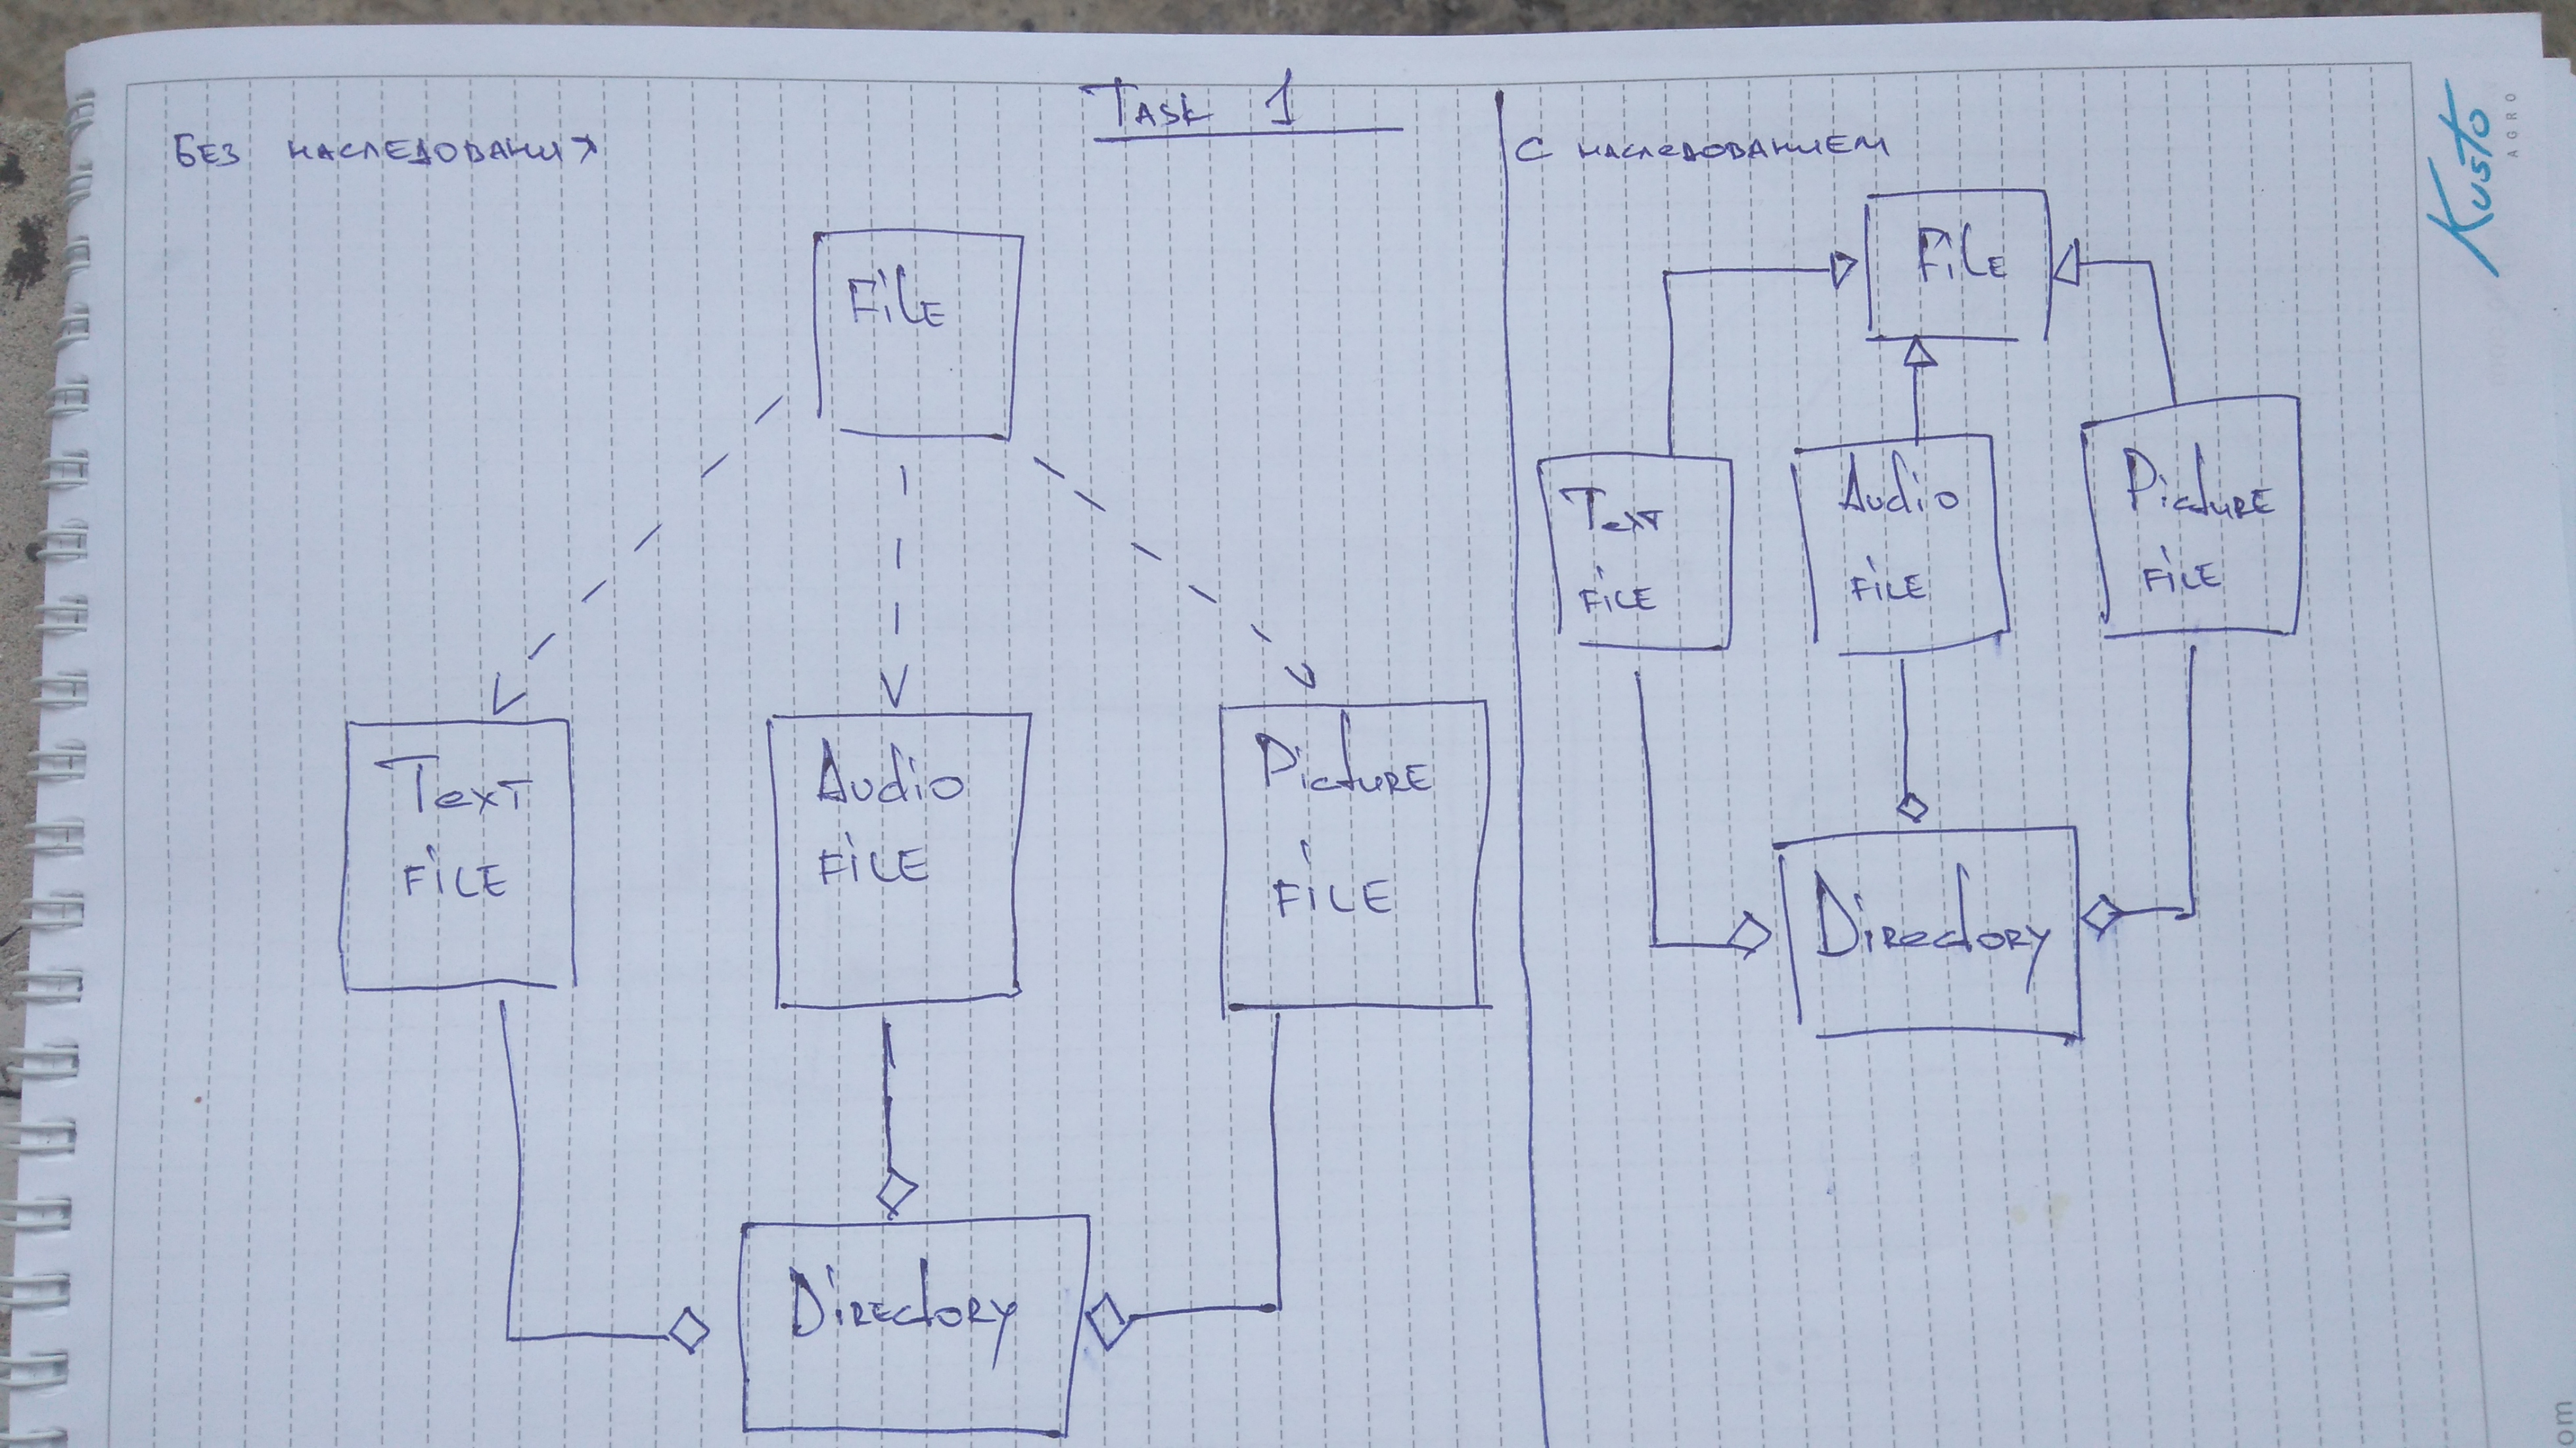 Task 1
БЕЗ НАСЛЕДОВАНИЯ
File
Text
File
Audio
File
Picture
File
Directory
С НАСЛЕДОВАНИЕМ
File
Text
File
Audio
File
Picture
File
Directory
Kusto
AGRO
om